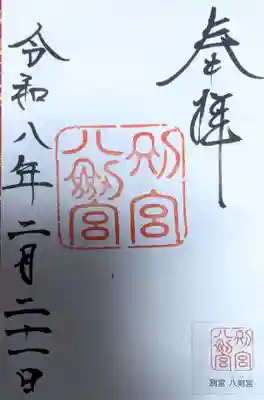 奉拝
別宮
八剣宮
令和八年二月二十一日
別宮
八剣宮
別宮 八剣宮